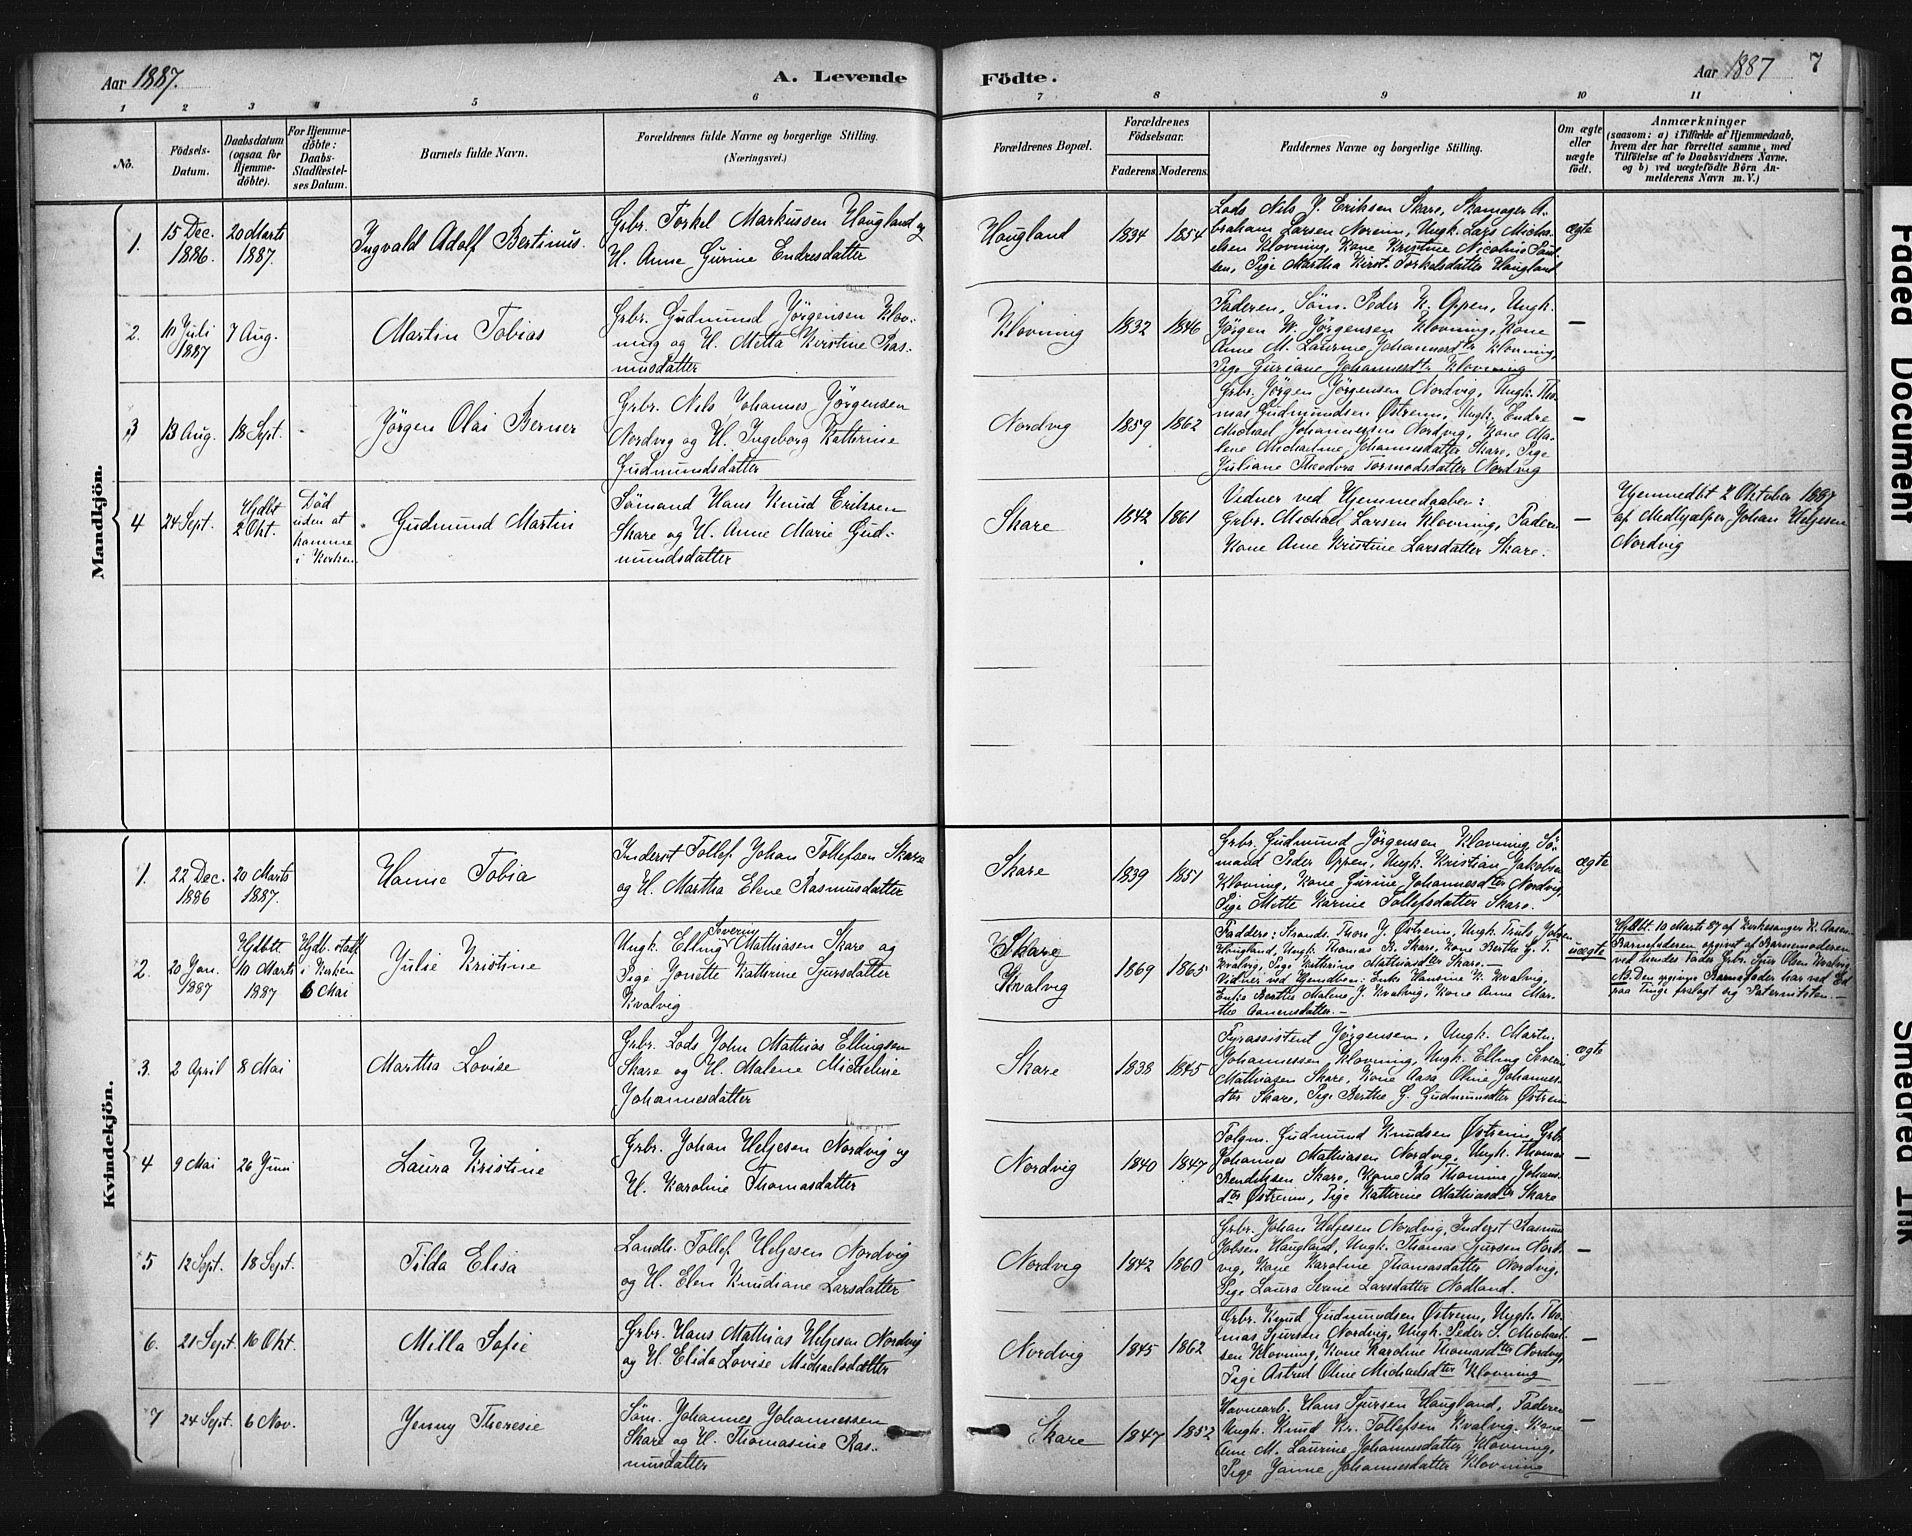 Aar 1887.
A. Levende
Födte.
Aar 1887
7
1
2
3
4
5
6
7
8
9
10
11
No.
Födsels-
Datum.
Daabsdatum
(ogsaa for
Hjemme-
döbte).
For Hjemme-
döbte:
Daabs-
Stadfæstel-
ses Datum.
Barnets fulde Navn.
Forældrenes fulde Navne og borgerlige Stilling.
(Næringsvei.)
Forældrenes Bopæl.
Forældrenes
Födselsaar.
Faderens.
Moderens.
Faddernes Navne og borgerlige Stilling.
Om ægte
eller
uægte
födt.
Anmærkninger
(saasom: a) i Tilfælde af Hjemmedaab,
hvem der har forrettet samme, med
Tilföielse af to Daabsvidners Navne,
og b) ved uægtefödte Börn An-
melderens Navn m. V.)
Mandkjön.
1.
15 Dec.
1886.
20 Marts
1887.
Ingvald Adolf Bertinus.
Grbr. Torkel Markussen Haugland og
H. Anne Gurine Endresdatter
Haugland
1834
1854
Lods Nils J. Eriksen Skare, Skomager A-
braham Larsen Noreim, Ungk. Lars Micha-
elsen Klovning, Kone Kristine Nicoline Paul-
sen, Pige Martha Kirst. Torkelsdatter Haugland
ægte
2.
10 Juli
1887
7 Aug.
Martin Tobias
Grbr. Gudmund Jörgensen Klov-
ning og H. Mitta Kirstine Ras-
musdatter
Klovning
1832
1846
Faderen, Söm. Peder K. Oppen, Ungk.
Jörgen W. Jörgensen Klovning, Kone
Anne M. Laurine Johannesdtr Klovning,
Pige Guriane Johannesdtr Klovning
—
3
13 Aug.
18 Sept.
-
Jörgen Olai Berner
Grbr. Nils Johannes Jörgensen
Nordvig og H. Ingeborg Kathrine
Gudmundsdatter
Nordvig
1859
1862
Grbr. Jörgen Jörgensen Nordvig, Ungk. Tho-
mas Gudmundsen Østrem, Ungk. Endre
Michael Johannessen Nordvig, Kone Ma-
lene Michaline Johannesdatter Skare, Pige
Juliane Theodora Tormodsdatter Nordvig
—
4
24 Sept.
Hjdbt
2 Okt.
Död
uden at
komme
i Kirken
Gudmund Martin
Sömand Hans Knud Eriksen
Skare og H. Anne Marie Gud-
mundsdatter
Skare
1842
1861
Vidner ved Hjemmedaaben:
Grbr. Michael Larsen Klovning, Faderen
Kone Ane Kristine Larsdatter Skare.
—
Hjemmedbt 2 Oktober 1887
af Medhjælper Johan Heljesen
Nordvig
Kvindekjön.
1.
22 Dec.
1886
20 Marts
1887.
Hanne Tobia
Inderst Tollef Johan Tollefsen Skare
og H. Martha Elene Rasmusdatter
Skare
1839
1851
Grbr. Gudmund Jörgensen Klovning, Sö-
mand Peder Oppen, Ungk. Kristian Jakobsen
Klovning, Kone Gurine Johannesdter Nordvig,
Pige Mette Karine Tollefsdatter Skare.
ægte
2.
20 Jan.
1887
Hjdbte
10 Marts
1887
Hjdb. stadf.
i Kirken
6 Mai
Julie Kristine
Ungk. Elling Severin Mathiasen Skare og
Pige Jonette Kathrine Sjursdatter
Kvalvig
Skare
Kvalvig
1869
1865
Faddere: Strands. Thore J. Østrem, Ungk. Truls Jobsen
Haugland, Ungk. Thomas B. Skare, Kone Berthe G. T.
Kvalvig, Pige Kathrine Mathiasdter Skare. —
Vidner ved Hjemdben: Enke Hansine K. Kvalvig,
Enke Berthe Malene J. Kvalvig, Kone Anne Mar-
the Aanensdatter. —
uægte
Hjdbt. 10 Marts 87 af Kirkesanger K. Aasen.
Barnefaderen opgivet af Barnemoderen
ved hendes Fader Grbr. Sjur Olsen Kvalvig.
NB. Den opgivne Barnefader har ved Ed
paa Tinge fralagt sig Paterniteten. —
3.
2 April
8 Mai
Martha Lovise
Grbr. Lods John Mathias Ellingsen
Skare og H. Malene Micheline
Johannesdatter
Skare
1838
1845
Fyrassistent Jörgensen, Ungk. Martin
Johannessen, Klovning, Ungk. Elling Severin
Mathiasen Skare, Kone Aasa Oline Johannes-
dtr Skare, Pige Berthe G. Gudmundsdtter Østrem
ægte
4
9 Mai
26 Juni
Laura Kristine
Grbr. Johan Heljesen Nordvig og
H. Karoline Thomasdatter
Nordvig
1840
1847
Folgm. Gudmund Knudsen Østrem, Grbr.
Johannes Mathiasen Nordvig, Ungk. Thomas
Bendiksen Skare, Kone Ida Thomine Johans-
dtr Østrem, Pige Kathrine Mathiasdtr Skare
—
5
12 Sept.
18 Sept.
Tilda Elisa
Landh. Tollef Heljesen Nordvig
og H. Elen Knudiane Larsdatter
Nordvig
1842
1860
Grbr. Johan Heljesen Nordvig, Inderst Rasmus
Jobsen Haugland, Ungk. Thomas Sjursen Nord-
vig, Kone Karoline Thomasdatter Nordvig,
Pige Laura Serine Larsdatter Nodland.
—
6.
21 Sept.
16 Okt.
Milla Sofie
Grbr. Hans Mathias Heljesen Nordvig
og H. Elida Lovise Michaelsdatter
Nordvig
1845
1862
Grbr. Knud Gudmundsen Østrem, Ungk. Tho-
mas Sjursen Nordvig, Ungk. Peder S. Michael-
sen Klovning, Kone Karoline Thomasdtr Nordvig,
Pige Astrid Oline Michaelsdter Klovning
—
7
24 Sept.
6 Nov.
Jenny Theresie
Söm. Johannes Johannessen
Skare og H. Thomasine Ras-
musdatter
Skare
1847
1852
Havnearb. Hans Sjursen Haugland, Faderen
Ungk. Knud Kr. Tollefsen Kvalvig, Kone
Ane M. Laurine Johannesdatter Klovning,
Pige Janne Johannesdatter Klovning
—
Faded Document
Smeared Ink